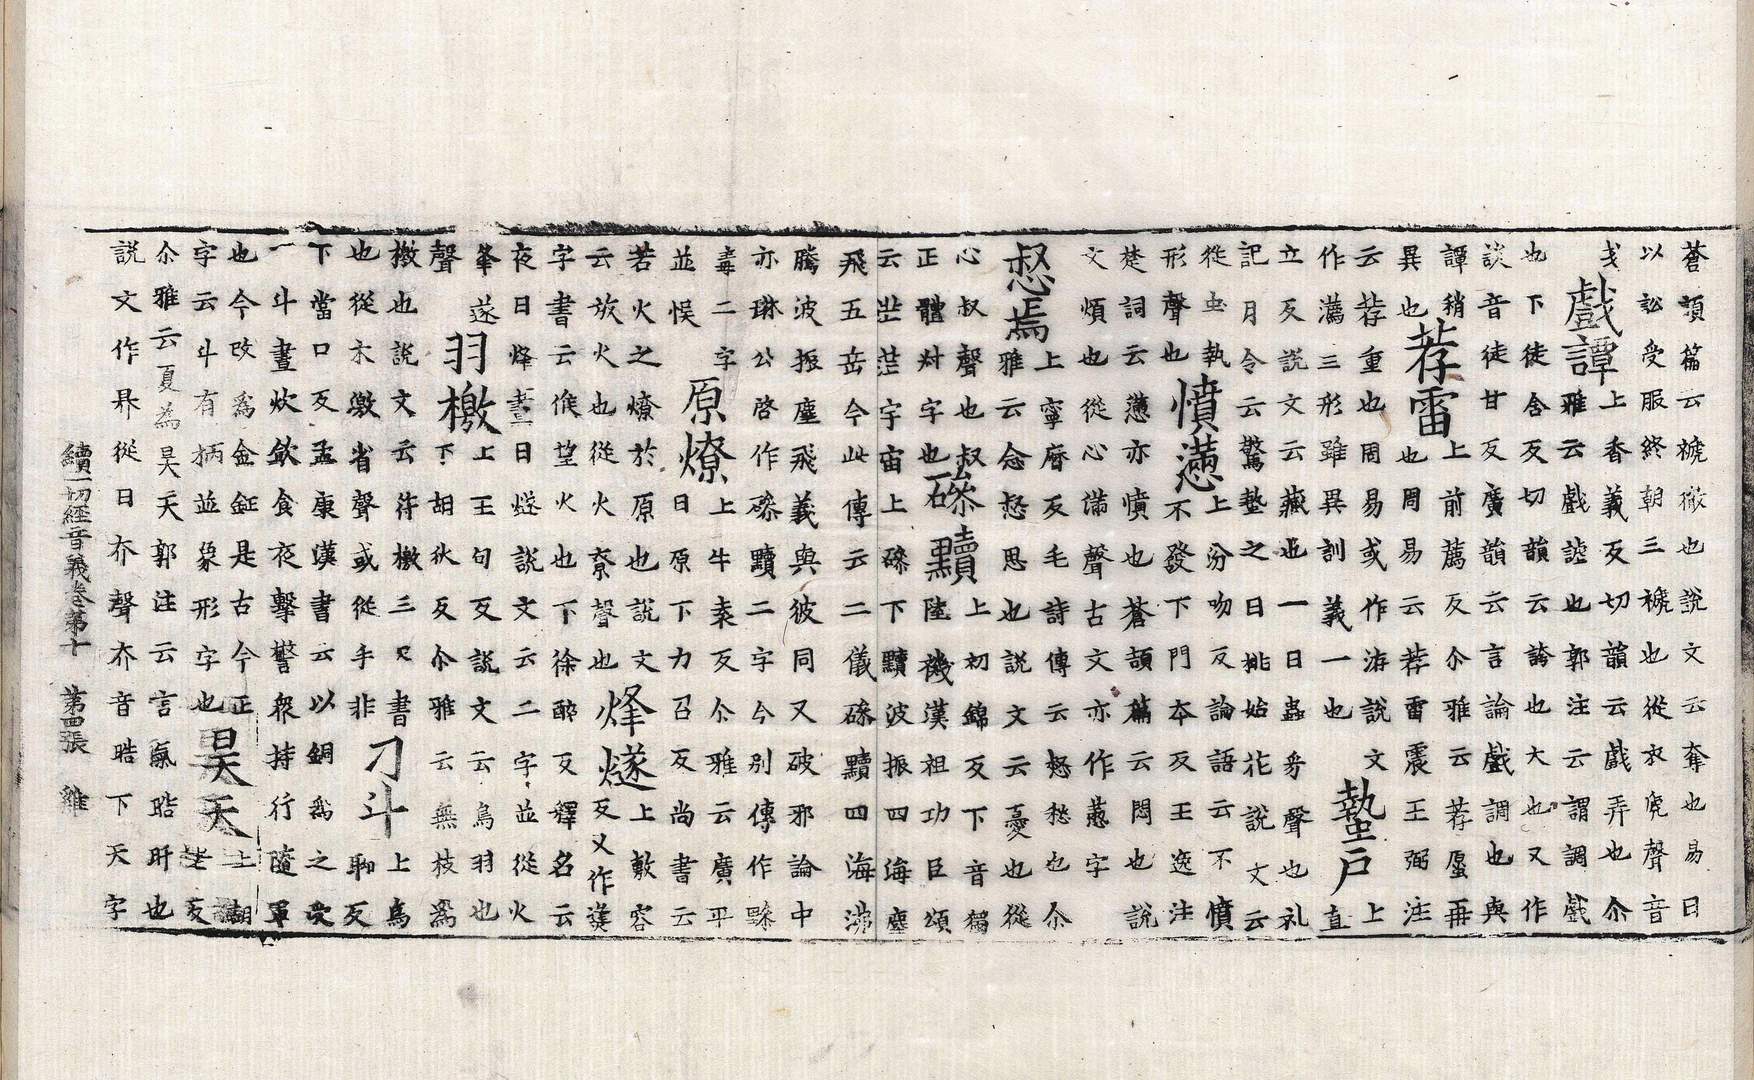 蒼頡篇云褫徹也說文云奪也易曰
以訟受服終朝三褫也從衣虒聲音
戲譚上香義反切韻云戲弄也尒
雅云戲謔也郭注云謂調戲
也下徒含反切韻云誇也大也又作
談音徒甘反廣韻云言論戲調也與
譚稍
異也
荐雷上前薦反尒雅云荐再
也周易云荐雷震王弼注
云荐重也周易或作洊說文
作瀳三形雖異訓義一也
蟄戶上
直
立反說文云藏也一曰蟲豸聲也礼
記月令云驚蟄之日桃始花說文云
從虫執
形聲也
憤懣上汾吻反論語云不憤
不發下門本反王逸注
楚詞云懣亦憤也蒼頡篇云悶也說
文煩也從心滿聲古文亦作字
惄焉上寧曆反毛詩傳云惄愁也尒
雅云念惄思也說文云憂也從
心叔聲也叔
正體尗字也
磣黷上初錦反下音獨
陸機漢祖功臣頌
云茫茫宇宙上磣下黷波振四海塵
飛五岳今此傳云二儀磣黷四海沸
騰波振塵飛義與彼同又破邪論中
亦琳公啓作磣黷二字今別傳作黲
毒二字
並悮
原燎上牛袁反尒雅云廣平
曰原下力召反尚書云
若火之燎於原也說文
云放火也從火尞聲也
烽燧上敷容
反又作㷭
字書云候望火也下徐醉反釋名云
夜曰烽晝曰燧說文云二字並從火
夆遂
聲
羽檄上王句反說文云鳥羽也
下胡狄反尒雅云無枝為
檄也說文云符檄三尺書
也從木敫省聲或從手非
刁斗上鳥
聊反
下當口反孟康漢書云以銅為之受
一斗晝炊飲食夜擊警衆持行隨軍
也今改為金鉦是古今正
字云斗有柄並象形字也
昊天上胡
老反
尒雅云夏為昊天郭注云言氣晧旰也
說文作昦從日夰聲夰音晧下天字
續一切經音義卷第十 第四張 雞